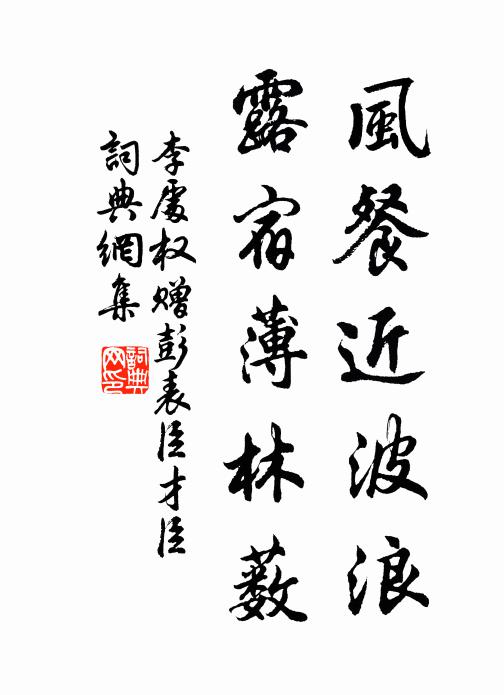 風餐近波浪
露宿薄林薮
李處权赠彭表臣才臣
詞典網集
詞典网印